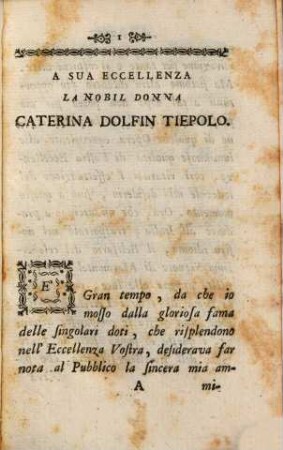 1
A SUA ECCELLENZA
LA NOBIL DONNA
CATERINA DOLFIN TIEPOLO.
E' Gran tempo, da che io
mosso dalla gloriosa fama
delle singolari doti, che risplendono
nell' Eccellenza Vostra, desiderava far
nota al Pubblico la sincera mia am-
A mi-